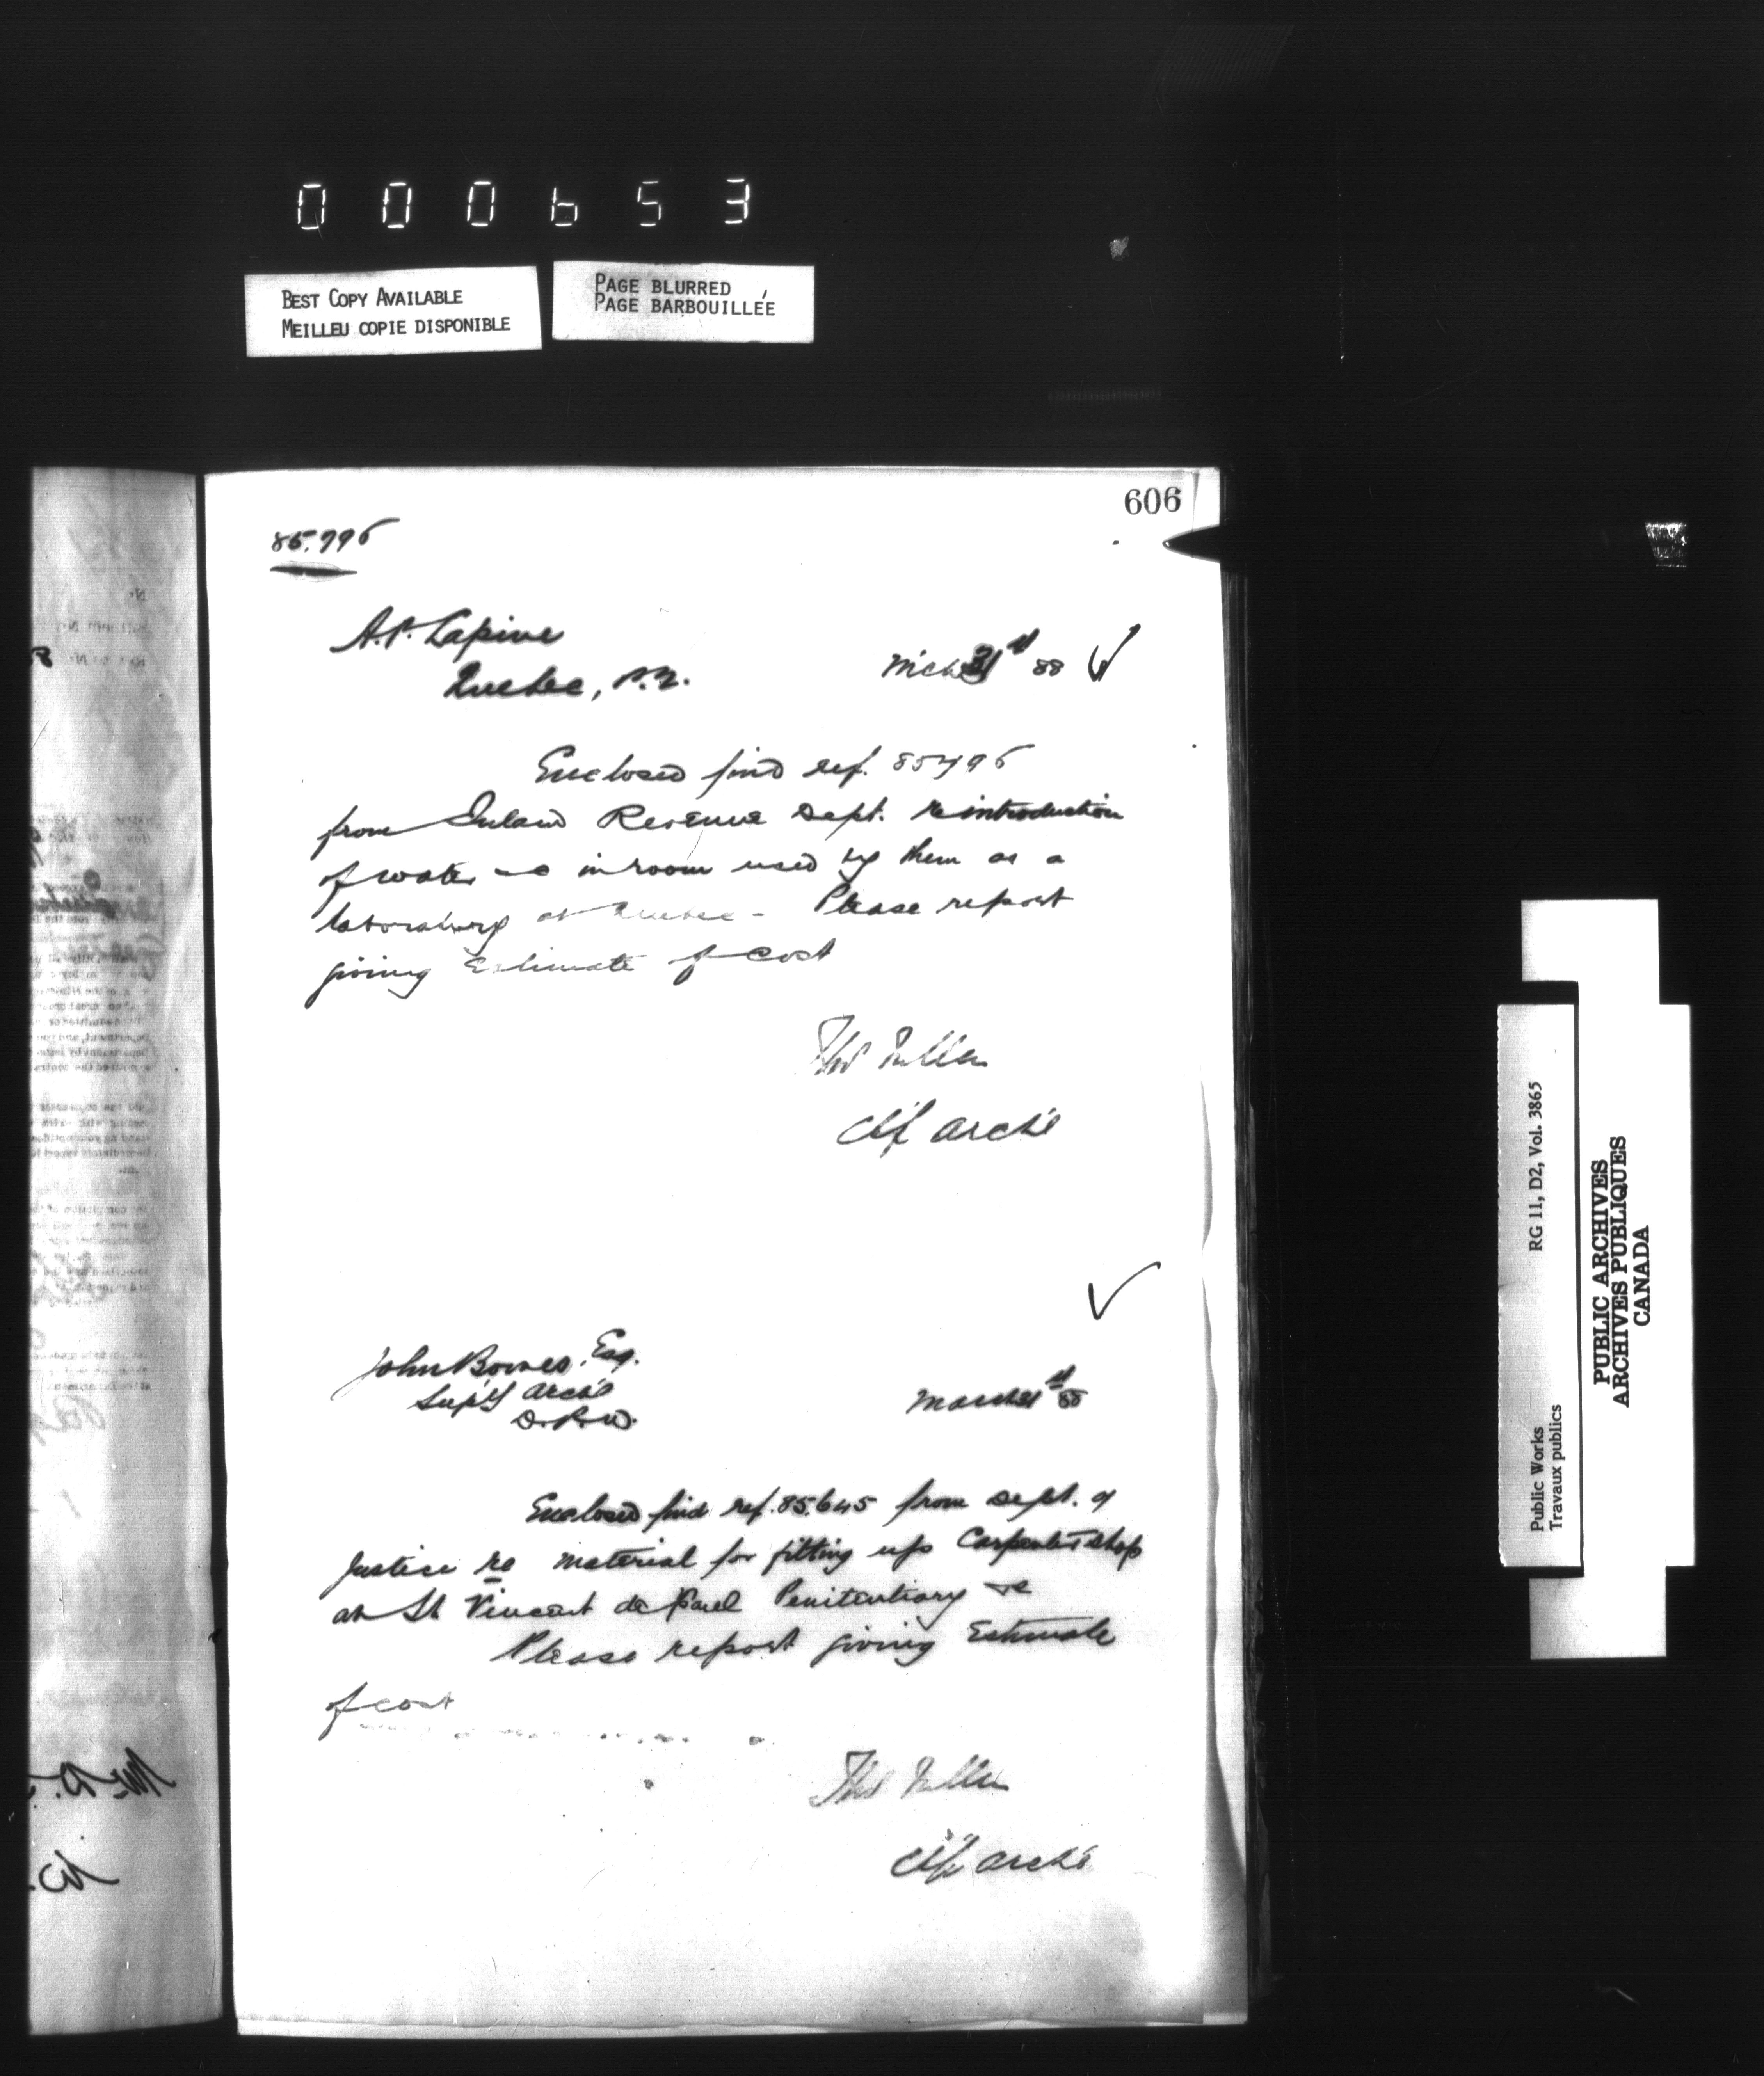 000653
BEST COPY AVAILABLE
MEILLEU COPIE DISPONIBLE
PAGE BLURRED
PAGE BARBOUILLÉE
606
85.796
A.P. Lapine
Quebec, P.Q.
Mch 31st 88
Enclosed find ref. 85796
from Inland Revenue Dept. re introduction
of water &c in room used by them as a
laboratory at Quebec - Please report
giving Estimate of Cost
Thos Fuller
Ch'f Arch't
John Bowes, Esq.
Sup'g Arch't
D.P.W.
March 31st 88
Enclosed find ref. 85.645 from Dept. of
Justice re material for fitting up Carpenter shop
at St Vincent de Paul Penitentiary &c
Please report giving Estimate
of cost
Thos Fuller
Ch'f Arch't
Public Works
Travaux publics
RG 11, D2, Vol. 3865
PUBLIC ARCHIVES
ARCHIVES PUBLIQUES
CANADA